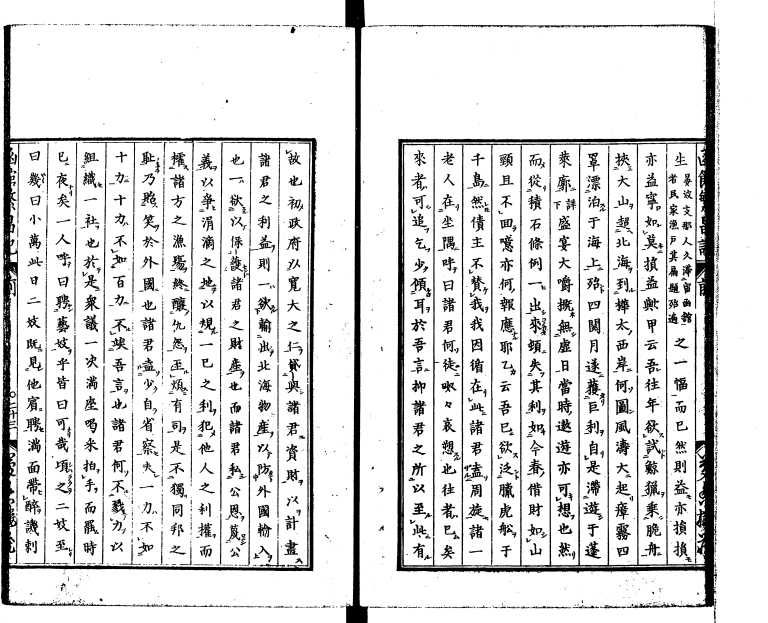 生晏波支那人久滯留函館
者民家漁戸其扁題殆遍之一幅而已然則益亦損損
亦益寧如莫損益歟甲云吾往年欲試鯨獵乘脆舟
挾大山超北海到樺太西岸何圖風濤大起瘴霧四
罩漂泊于海上殆四閲月遂獲巨利自是滯遊于蓬
萊廓詳下盛宴大嚼概無虚日當時遨遊亦可想也然
而從積石條例一出來頓失其利如今春借財如山
頸且不回噫亦何報應耶乙云吾已欲泛臘虎舩于
千島然債主不贊我我因循在此諸君盍周旋諸一
老人在坐隅呼曰諸君何徒啾々哀想也往者已矣
來者可追乞少傾耳於吾言抑諸君之所以至此有
故也初政府以寬大之仁貸與諸君資財以計畫
諸君之利益則一欲輸出北海物産以防外國輸入
也一欲以保護諸君之財産也而諸君私公恩蔑公
義以爭涓滴之地以規一已之利犯他人之利權而
權諸方之漁場終釀仇怨至煩有司是不獨同邦之
恥乃貽笑於外國也諸君盍少自省察夫一力不如
十力十力不如百力不埃吾言也諸君何不戮力以
組織一社也於是衆議一決滿座喝采拍手而罷時
已夜矣一人呼曰聘藝妓乎皆曰可哉頃之二妓至
曰幾曰小萬此日二妓既見他賓聘滿面帶醉譏刺